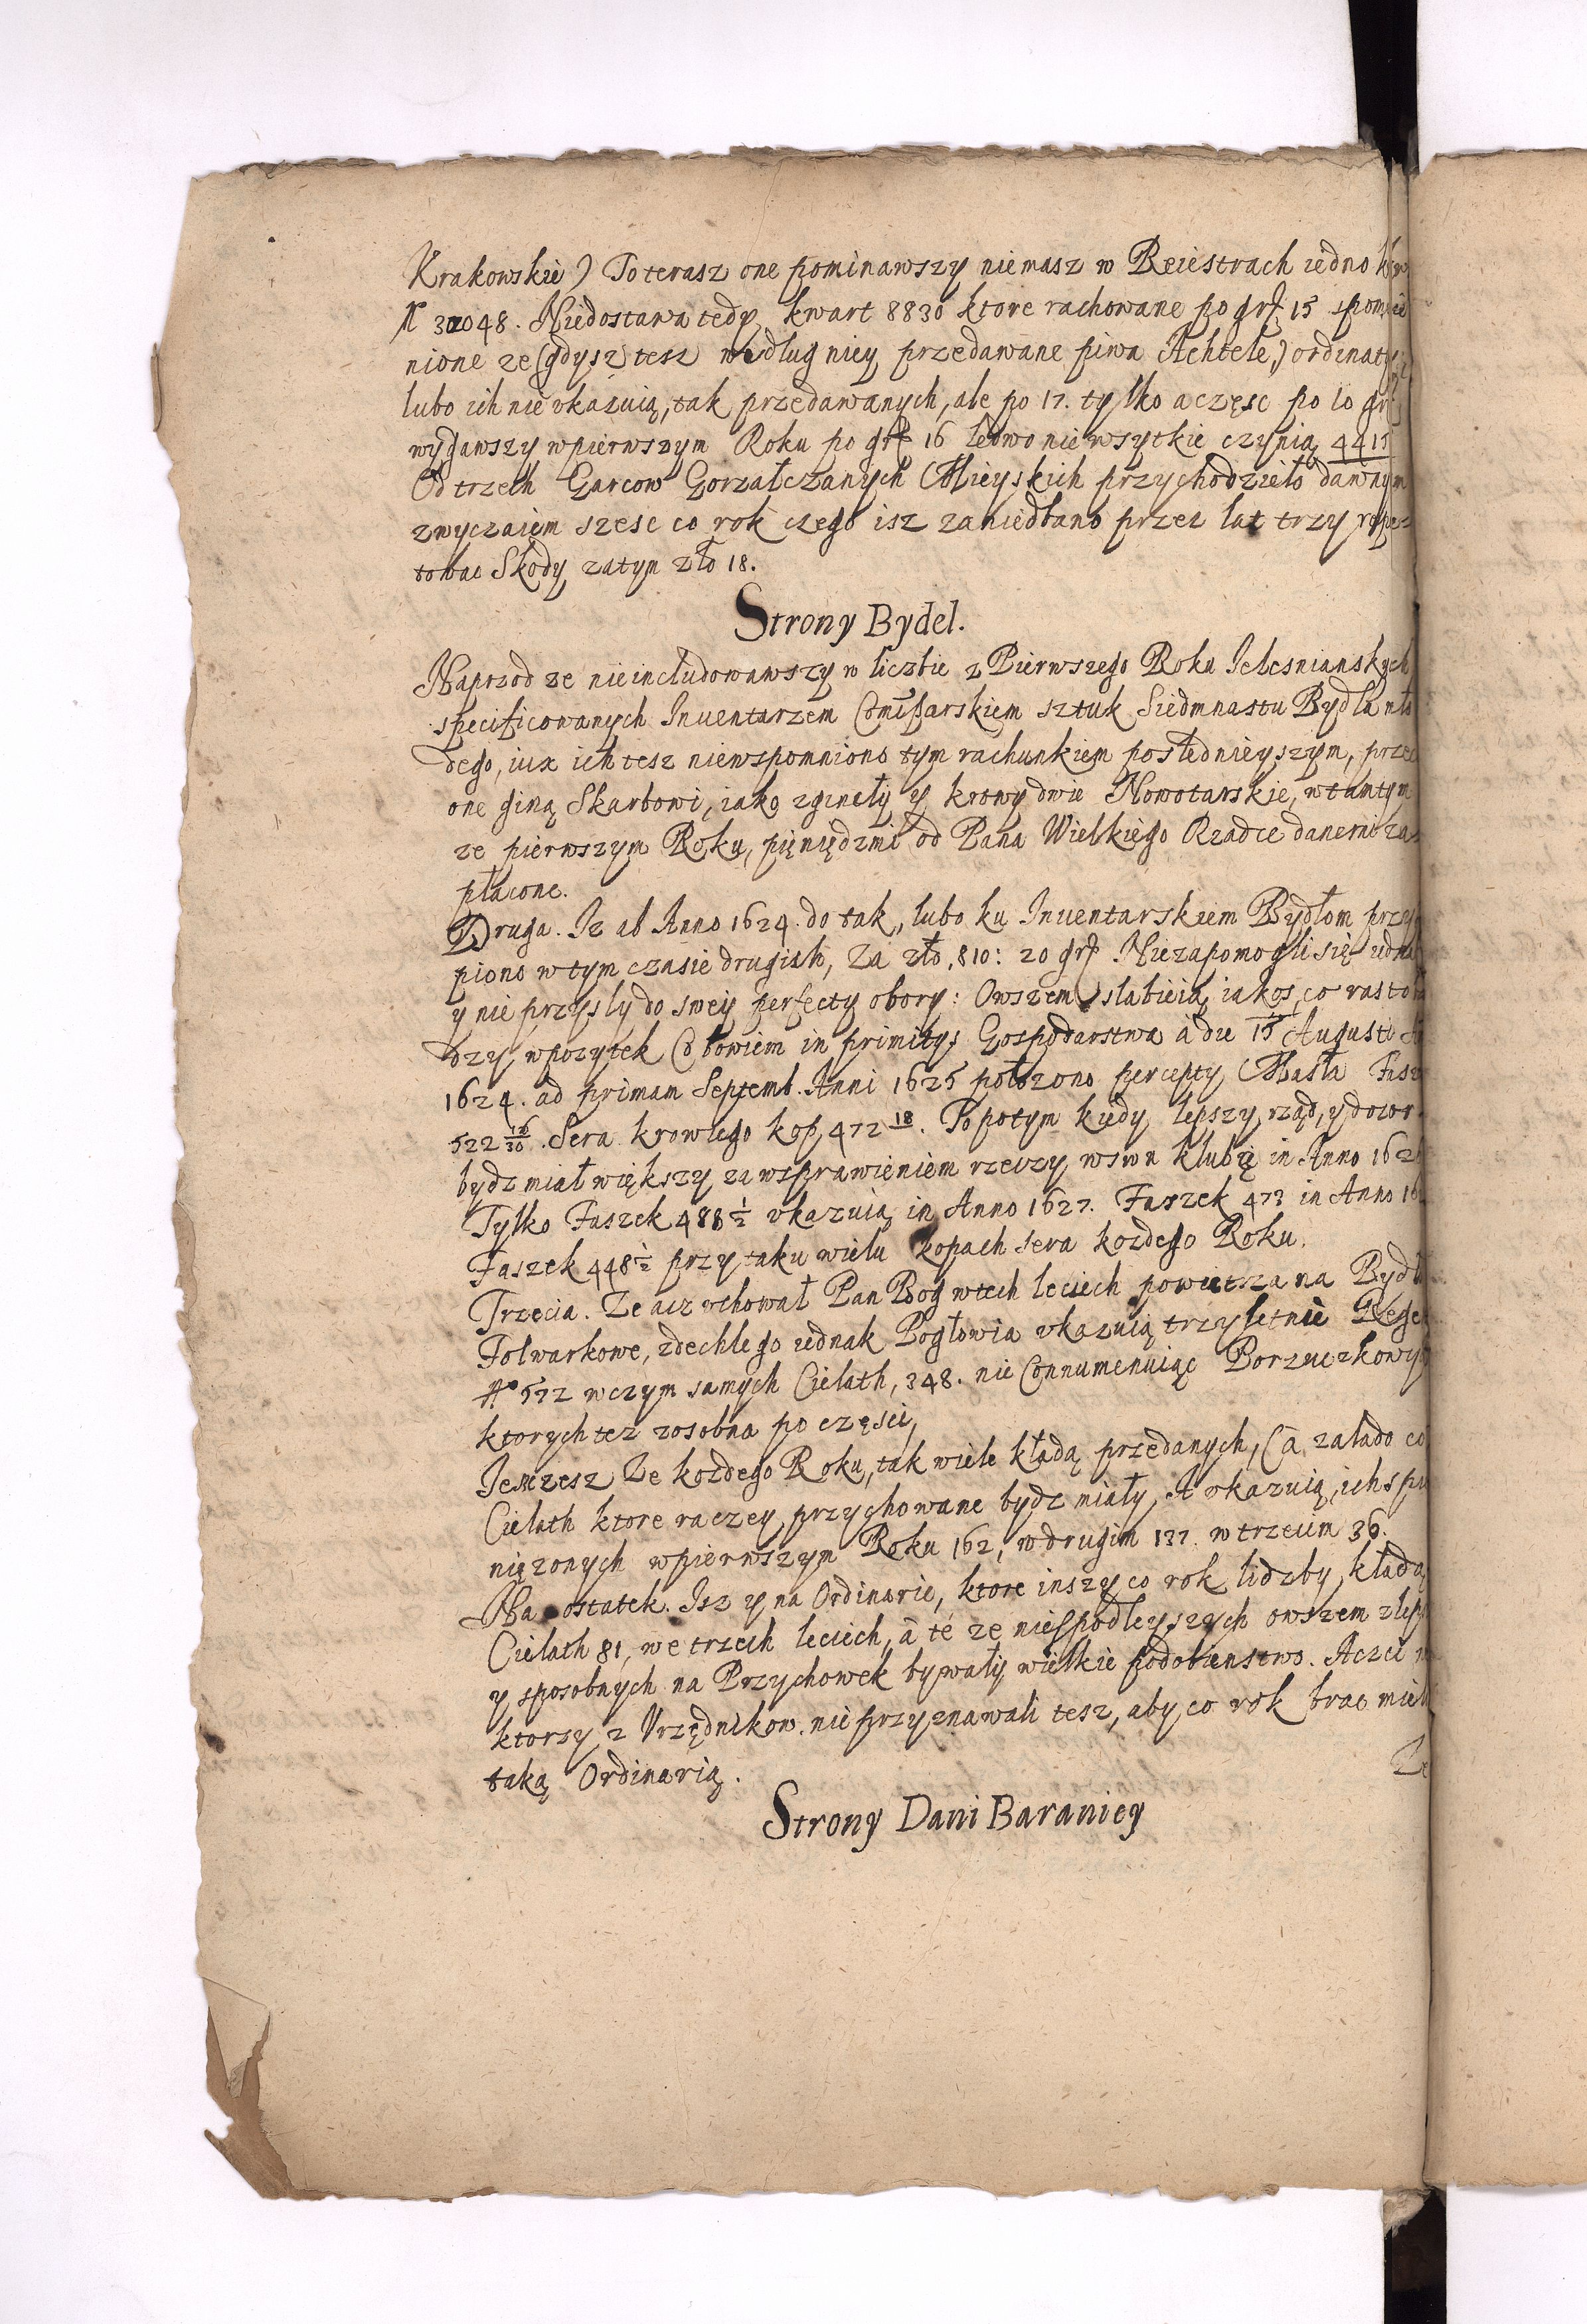 Krakowskie) To terasz one pominawszy niemasz w Reiestrach iedno
048. Niedostawa tedy kwart 8830 ktore rachowane po grſ 15
nione ze (gdysz tesz według niey przedawane piwa Achtele,)
lubo ich nie vkazuią, tak przedawanych, ale po 17. tylko a częsc po 10
wygawszy w pierwszym Roku po grſ 16 ledwo nie wszytkie czynią 4415
Od trzech Garcow Gorzałczanych Mieyskich przychodzieło dawnym
zwyczaiem szesc co rok czego isz zaniedbano przez lat trzy
towac Skody zatym zło 18.
Strony Bydel.
Naprzod ze nieincludowawszy w liczbie z Pierwszego Roku Ielesnianskych
specificowanych Inuentarzem Comißarskiem sztuk Siedmnastu Bydla mło
dego, iux ich tesz niewspomniono tym rachunkiem poslednieyszym,
one giną Skarbowi, iako zginęły y krowy dwie Nowotarskie, w tamtym
ze pierwszym Roku, pięniędzmi od Pana Wielkiego Rządce danemi za
płacone.
Druga. Iz ab Anno 1624. do tak, lubo ku Inuentarskiem Bydłom
piono w tym czasie drugich, Za zło, 810: 20 grſ Niezapomogli się
y nie przysly do swey perfecty obory: Owszem słabieią iakos co
dzy w pozytek bowiem in primitys Gospodarstwa à die 15 Augusti
1624. ad primam Septemb. Anni 1625 położono percepty Masła
522 Sera krowiego kop 472 18. Po potym kiedy lepszy rząd, y dozor
bydz miał większy za wsprawieniem rzeczy w swa klubę in Anno
Tylko Faszek 488 ½ vkazuią in Anno 1627. Faszek 473 in Anno
Faszek 448 ½ przy taku wielu kopach sera kozdego Roku.
Trzecia. Ze acz vchował Pan Bog w tech leciech powietrza na
Folwarkowe, zdechlego iednak Pogłowia vkazuią trzyletnie
572 w czym samych Cielath, 348. nie Connumeruiąc
ktorych tez zosobna po częsci,
Iesczesz Ze kozdego Roku, tak wiele kładą przedanych, (a zalado co
Cielath ktore raczey przychowane bydz miały, A vkazuią ich
nięzonych w pierwszym Roku 162, w drugim 137. w trzecim 36.
Na ostatek. Isz y na Ordinarie, ktore inszy co rok lidzby kładą
Cielath 81, we trzech leciech, à té ze niespodleyszych owszem
y sposobnych na Przychowek bywały wielkie podobienstwo. Aczci
ktorzy z Vrzędnikow. nie przyznawali tesz, aby co rok brac
taką Ordinarią.
Strony Dani Baraniey